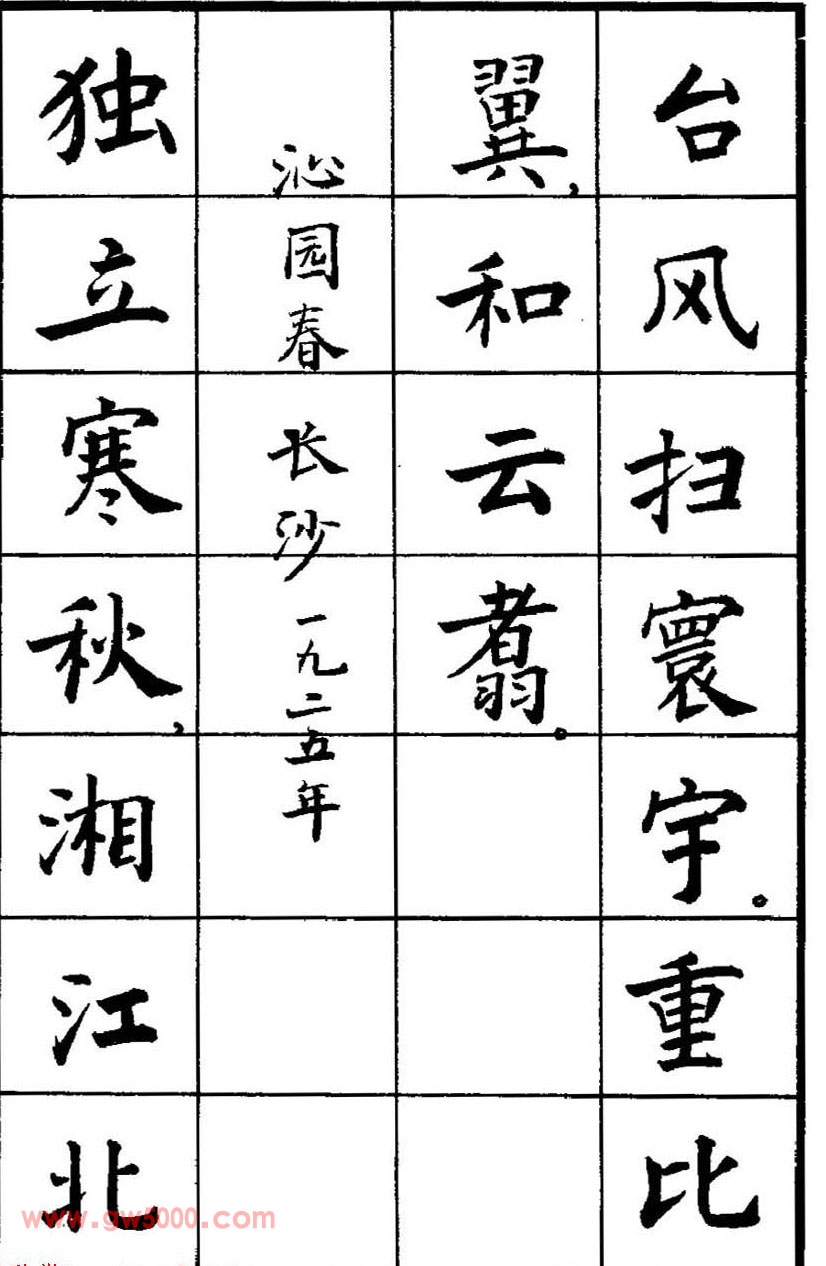 台风扫寰宇。重比
翼，和云翥。
沁园春 长沙 一九二五年
独立寒秋，湘江北
www.gw5000.com